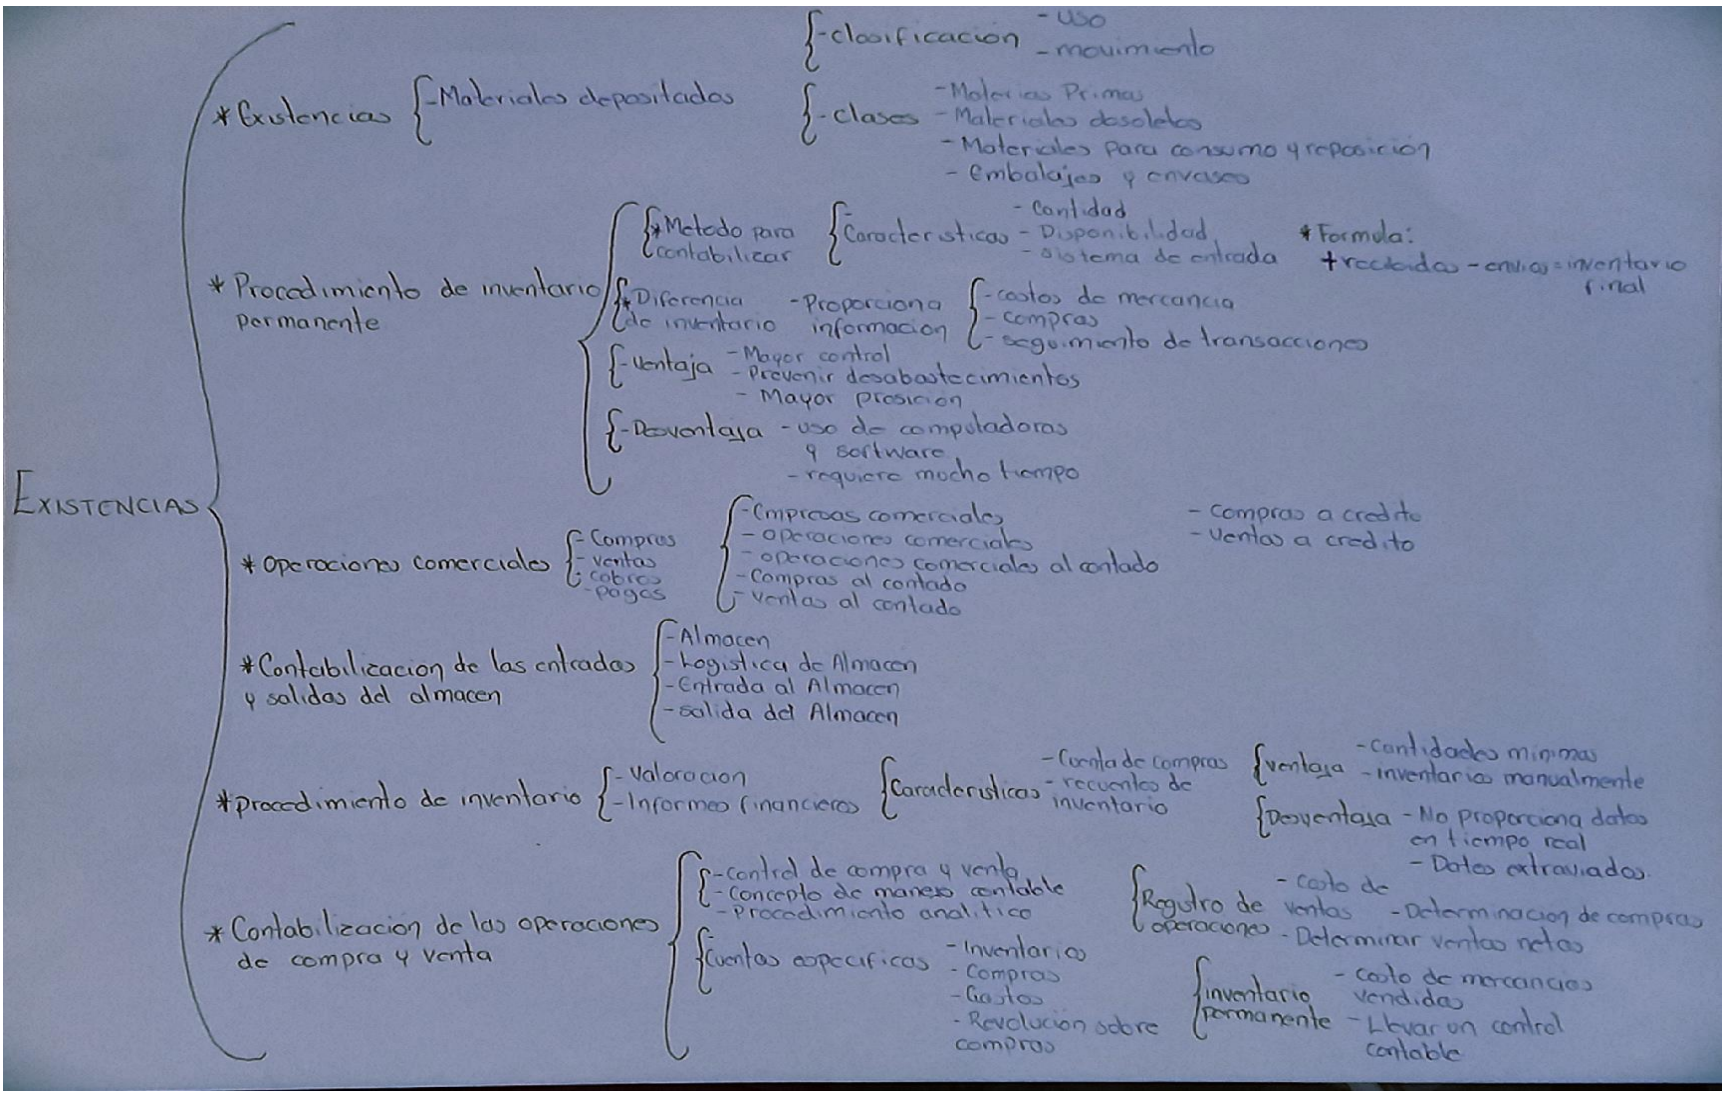 EXISTENCIAS
* Existencias
- Materiales depositados
- clasificacion
- uso
- movimiento
- clases
- Materias Primas
- Materiales obsoletos
- Materiales para consumo y reposicion
- Embalajes y envases
* Procedimiento de inventario
permanente
* Metodo para
contabilizar
Caracteristicas
- Cantidad
- Disponibilidad
- sistema de entrada
* Formula:
+ recibidos - envios = inventario
final
* Diferencia
de inventario
- Proporciona
informacion
- costos de mercancia
- compras
- seguimiento de transacciones
- Ventaja
- Mayor control
- Prevenir desabastecimientos
- Mayor presicion
- Desventaja
- uso de computadoras
y software
- requiere mucho tiempo
* Operaciones comerciales
- Compras
- ventas
- cobros
- pagos
- Empresas comerciales
- operaciones comerciales
- operaciones comerciales al contado
- Compras al contado
- ventas al contado
- compras a credito
- ventas a credito
* Contabilizacion de las entradas
y salidas del almacen
- Almacen
- Logistica de Almacen
- Entrada al Almacen
- salida del Almacen
* procedimiento de inventario
- Valoracion
- Informes financieros
Caracteristicas
- Cuenta de compras
- recuentos de
inventario
ventaja
- Cantidades minimas
- inventarios manualmente
Desventaja
- No proporciona datos
en tiempo real
- Datos extraviados.
* Contabilizacion de las operaciones
de compra y venta
- control de compra y venta
- Concepto de manejo contable
- Procedimiento analitico
Cuentas especificas
- Inventarios
- Compras
- Gastos
- Revolucion sobre
compras
Registro de
operaciones
- costo de
ventas
- Determinacion de compras
- Determinar ventas netas
inventario
permanente
- costo de mercancias
vendidas
- Llevar un control
contable